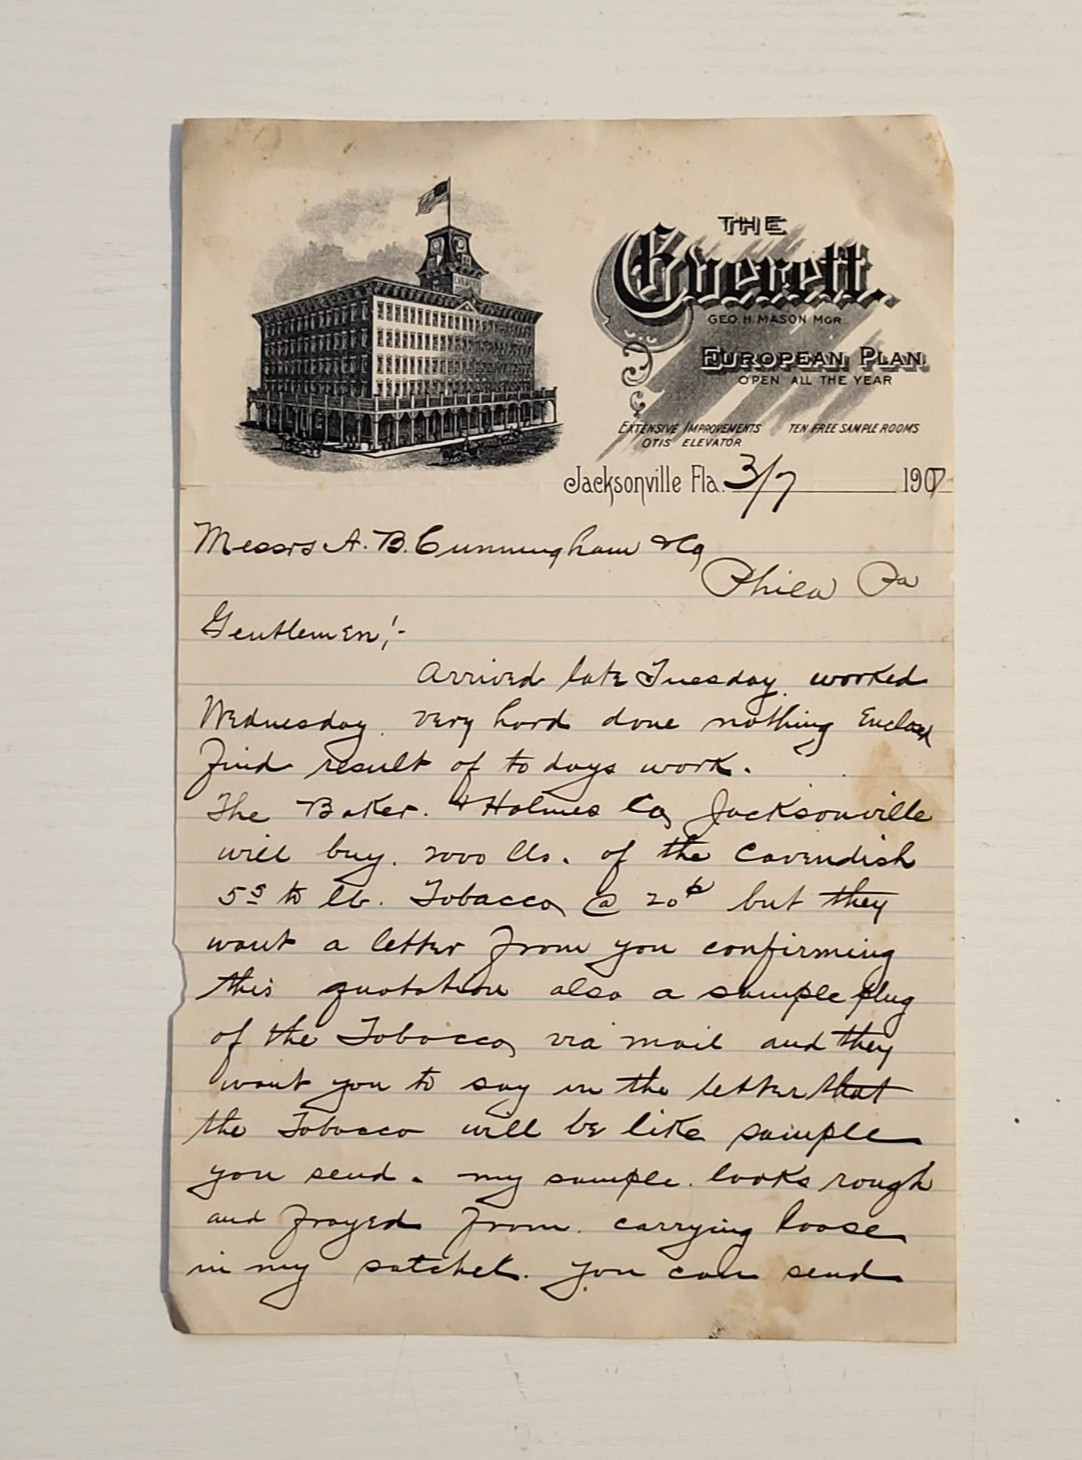 THE
Everett.
GEO. H. MASON MGR.
EUROPEAN PLAN.
OPEN ALL THE YEAR
EXTENSIVE IMPROVEMENTS TEN FREE SAMPLE ROOMS
OTIS ELEVATOR
Jacksonville Fla. 3/7 1907
Messrs A. B. Cunningham & Co
Phila Pa
Gentlemen;-
Arrived late Tuesday. worked
Wednesday. very hard done nothing Enclosed
find result of to days work.
The Baker. & Holmes Co, Jacksonville
will buy. 2000 lbs. of the Cavendish
5s to lb. Tobacco, @ 20¢ but they
want a letter from you confirming
this quotation also a sample plug
of the Tobacco, via mail and they
want you to say in the letter that
the Tobacco will be like sample
you send. my sample. looks rough
and frayed from. carrying loose
in my satchel. you can send